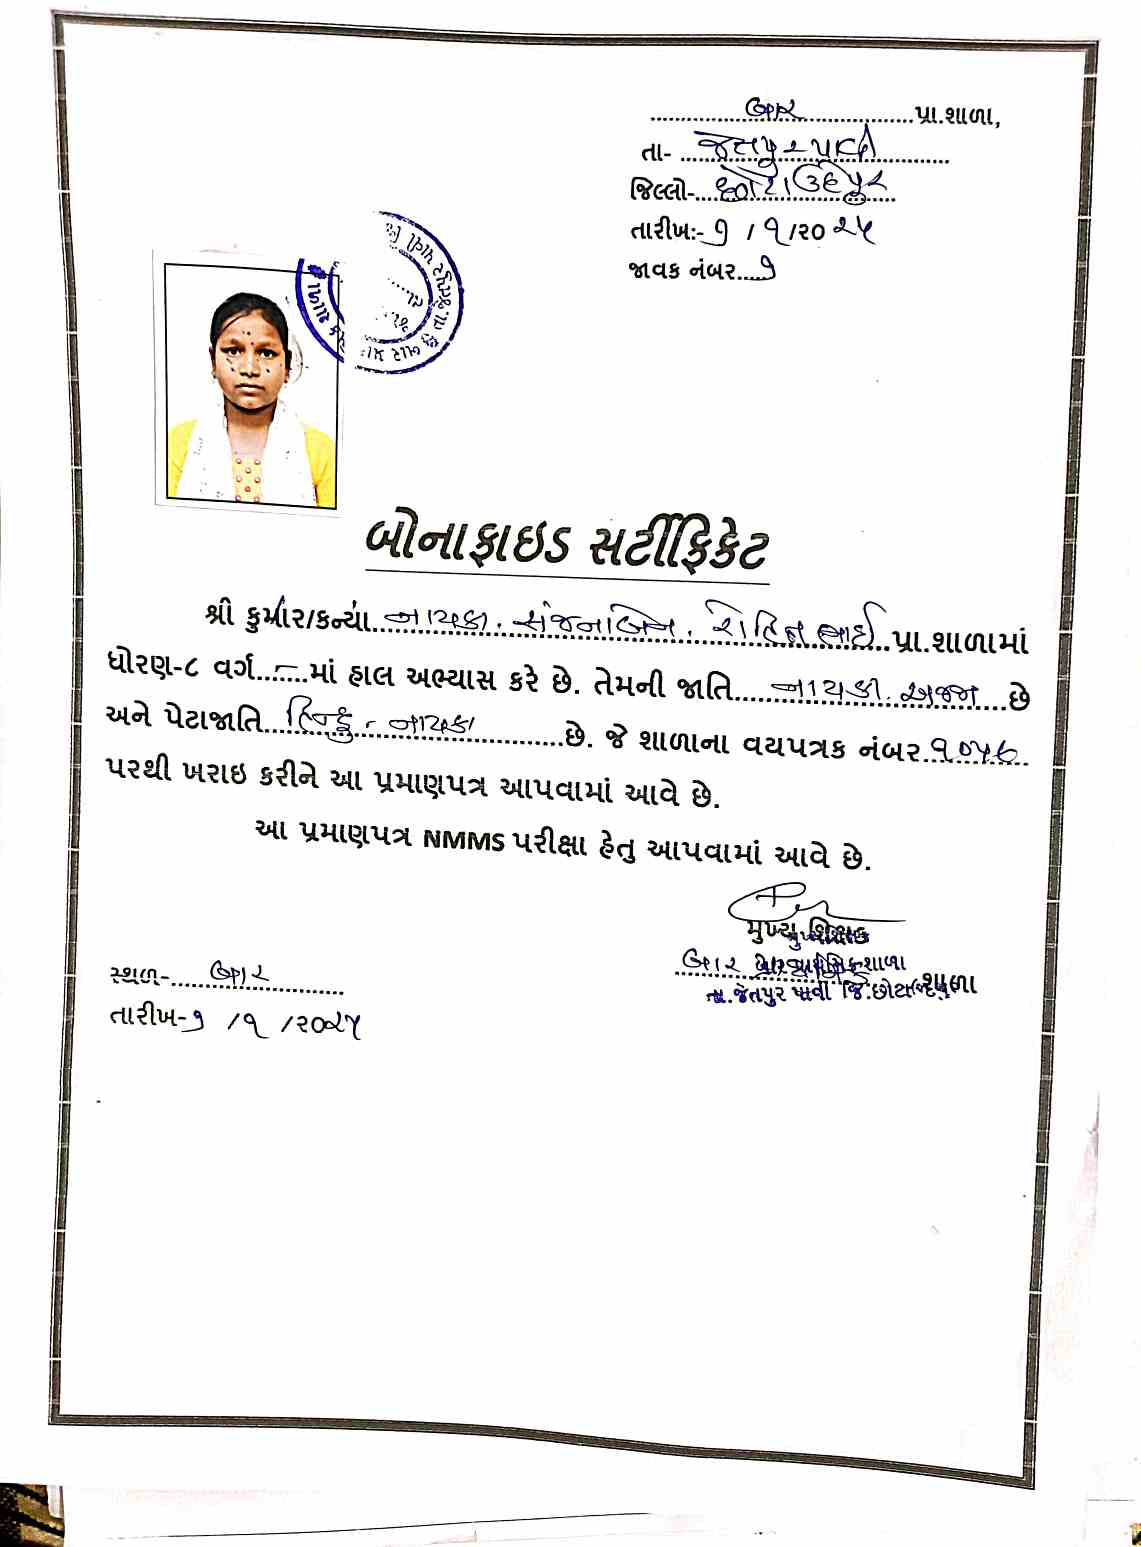 બાર પ્રા.શાળા,
તા- જેતપુર પાવી
જિલ્લો- છોટાઉદેપુર
તારીખ:- ૧ / ૧ /૨૦ ૨૫
જાવક નંબર....૧
બોનાફાઇડ સર્ટીફિકેટ
શ્રી કુમાર/કન્યા નાયકા. સંજનાબેન. રોહિતભાઈ પ્રા.શાળામાં
ધોરણ-૮ વર્ગ..૮...માં હાલ અભ્યાસ કરે છે. તેમની જાતિ નાયકા. અજજ છે
અને પેટાજાતિ હિન્દુ - નાયકા છે. જે શાળાના વયપત્રક નંબર ૧૦૫૭
પરથી ખરાઇ કરીને આ પ્રમાણપત્ર આપવામાં આવે છે.
આ પ્રમાણપત્ર NMMS પરીક્ષા હેતુ આપવામાં આવે છે.
મુખ્ય શિક્ષક
બાર શાળા
તા.જેતપુર પાવી જિ.છોટાઉદેપુર
સ્થળ- બાર
તારીખ-૧ /૧ /૨૦૨૫